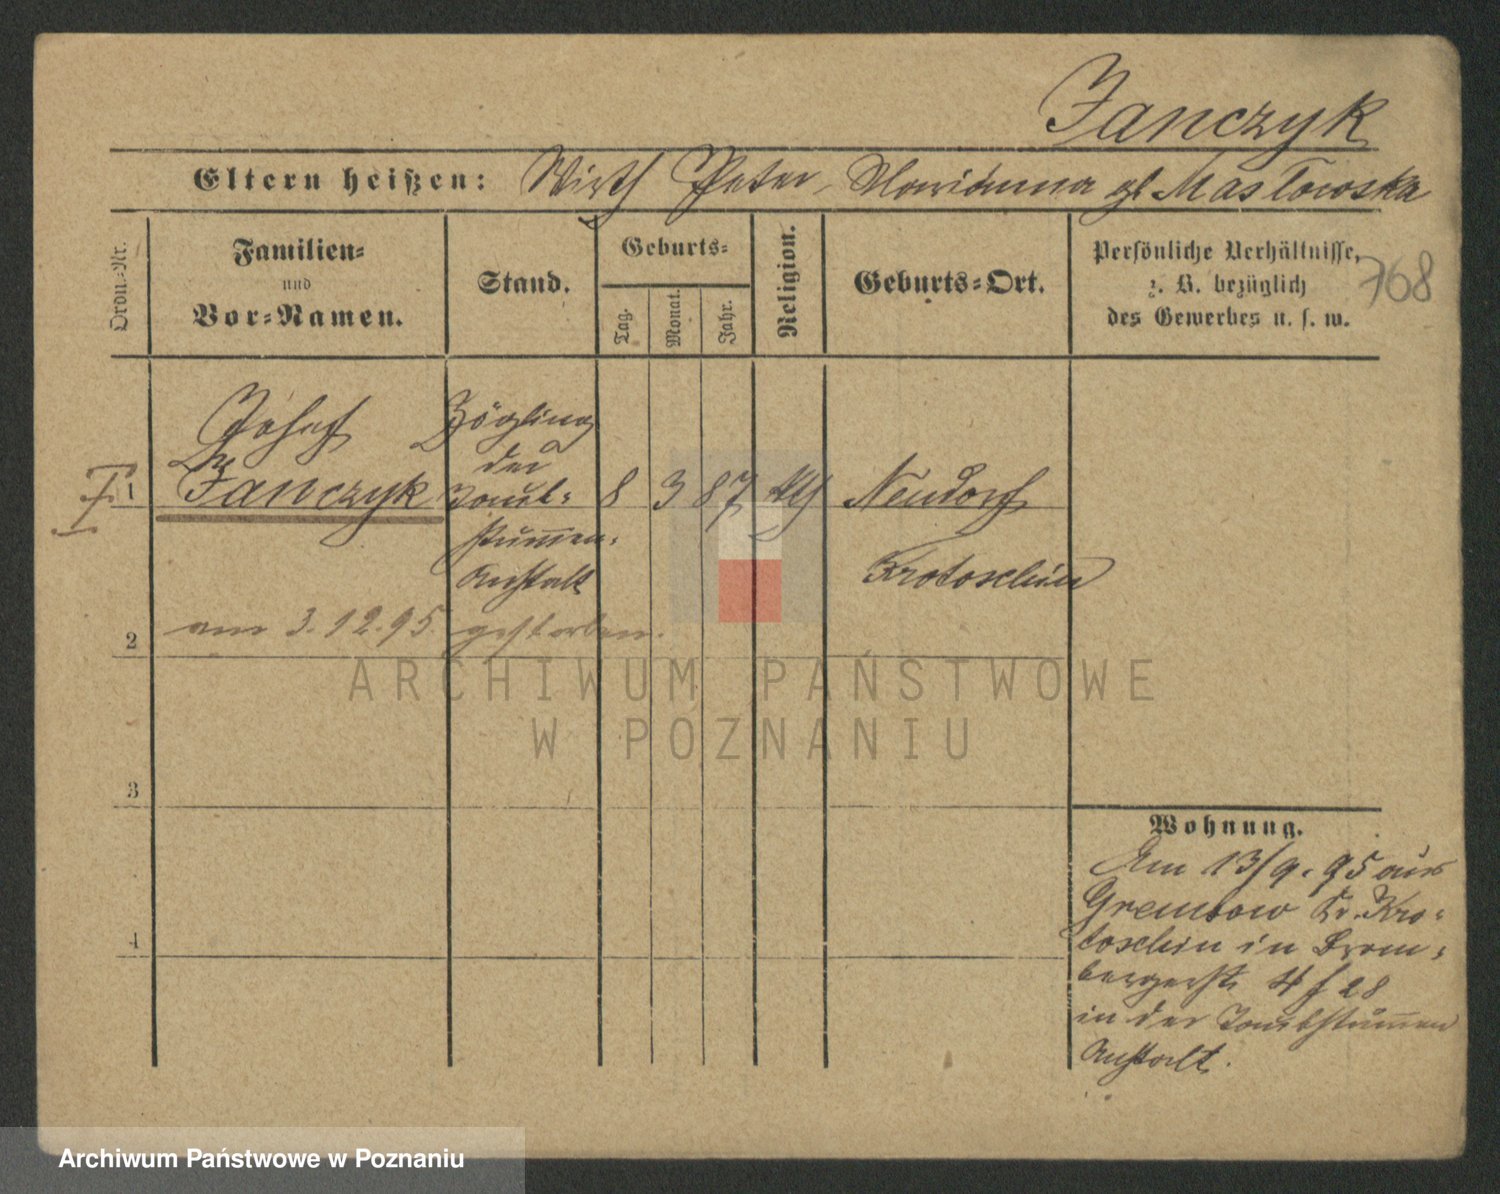 Janczyk
Eltern heißen: Wirth Peter, Marianna gb Masłowska
Ordn.-Nr.
Familien-
und
Vor-Namen.
Stand.
Geburts-
Tag.
Monat.
Jahr.
Religion.
Geburts-Ort.
Persönliche Verhältnisse,
z. B. bezüglich
des Gewerbes u. s. w.
768
1
Josef
Janczyk
Zögling
der
Taub-
stummen-
Anstalt
8
3
87
kth
Neudorf
Krotoschin
2
am 3.12.95. gestorben.
3
4
Wohnung.
Am 13/9. 95 aus
Kr. Kro-
toschin in Brom-
bergerstr 4 f 28
in der Taubstummen
Anstalt.
ARCHIWUM PAŃSTWOWE
W POZNANIU
Archiwum Państwowe w Poznaniu